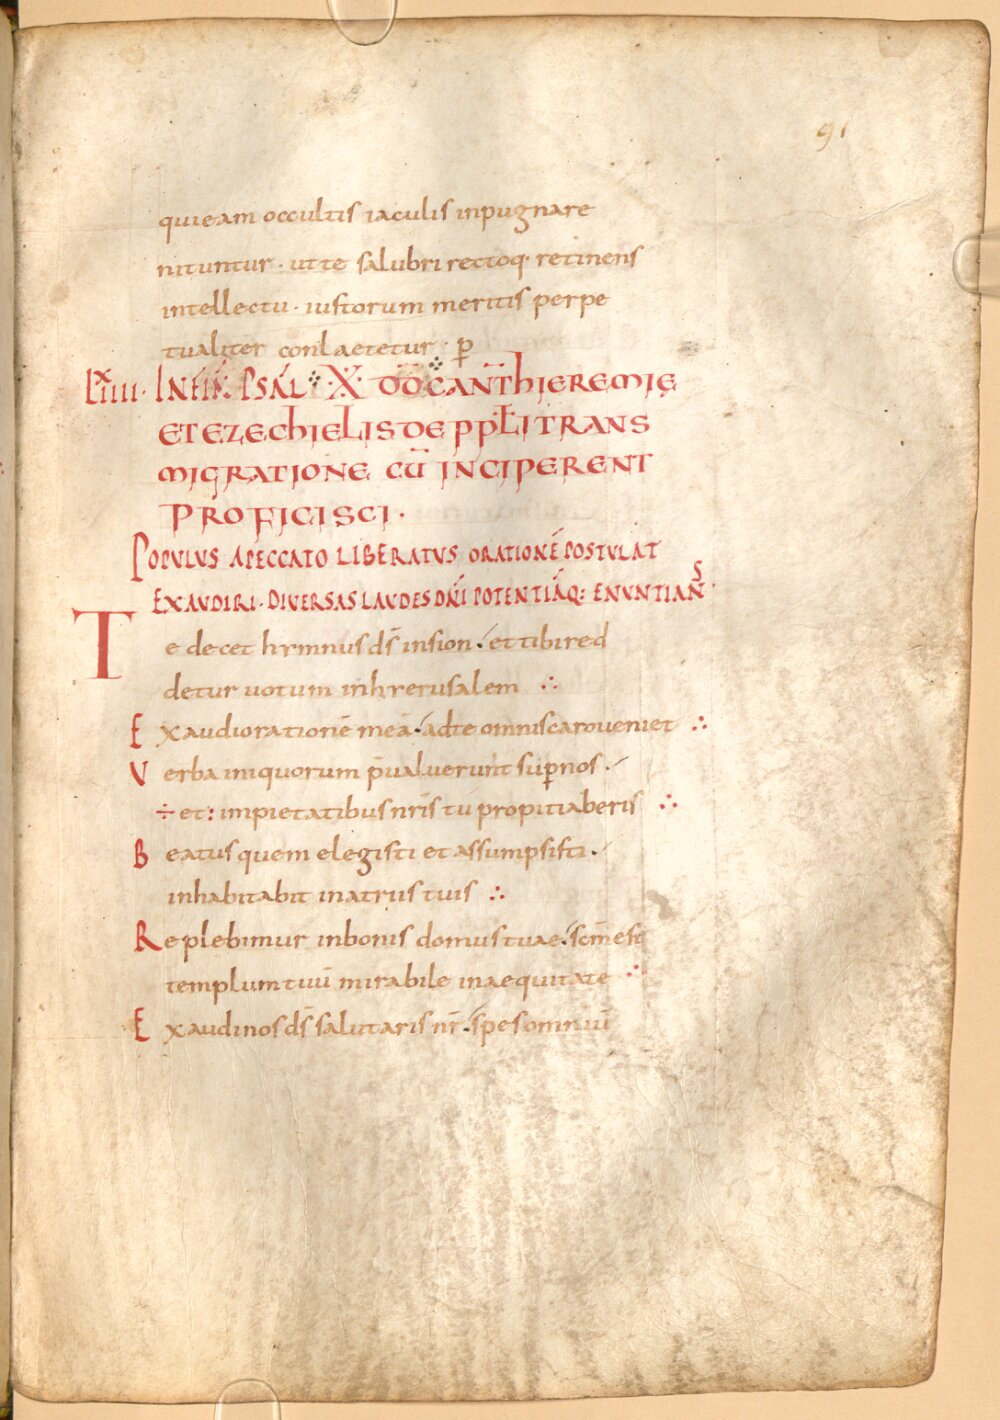 91
quieam occultis iaculis inpugnare
nituntur · utte salubri rectoq· retinens
intellectu · iustorum meritis perpe
tualiter conlaetetur · p̄
LXIIII · IN FIN̄ · PSAL̄ · X · DD̄ CANT̄ hIEREMIĘ
ET EZEChIELIS DE PPL̄I TRANS
MIGRATIONE CŪ INCIPERENT
PROFICISCI ·
POPULUS APECCATO LIBERATUS ORATIONĒ POSTULAT
EXAUDIRI · DIVERSAS LAUDES DN̄I POTENTIĀQ: ENUNTIANS ·
Te decet hymnus dś insion · et tibi red
detur uotum inhierusalem ∴
Exaudi orationē meā · adte omnis caro ueniet ∴
Verba iniquorum p̄ualuerunt sup̱ nos ·
÷ et : impietatibus nr̄is tu propitiaberis ∴
Beatus quem elegisti et assumpsisti ·
inhabitabit inatriis tuis ∴
Replebimur inbonis domus tuae · sc̄m est
templum tuū mirabile inaequitate ∴
Exaudi nos dś salutaris nr̄ · spes omniū